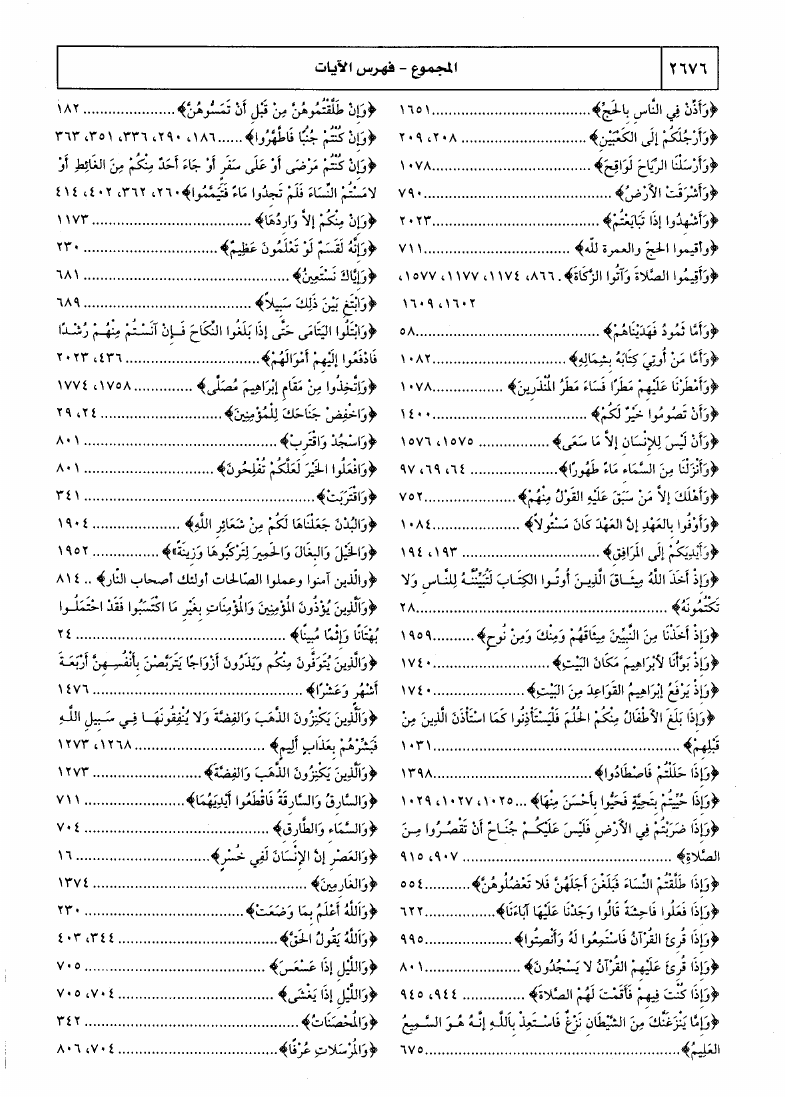 ٢٦٧٦
المجموع - فهرس الآيات
﴿وَأَذِّنْ فِي النَّاسِ بِالحَجِّ﴾......١٦٥١
﴿وَأَرْجُلَكُمْ إِلَى الكَعْبَيْنِ﴾......٢٠٨، ٢٠٩
﴿وَأَرْسَلْنَا الرِّيَاحَ لَوَاقِحَ﴾......١٠٧٨
﴿وَأَشْرَقَتْ الأَرْضُ﴾......٧٩٠
﴿وَأَشْهِدُوا إِذَا تَبَايَعْتُمْ﴾......٢٠٢٣
﴿وأقيموا الحجّ والعمرة لله﴾......٧١١
﴿وَأَقِيمُوا الصَّلَاةَ وَآتُوا الزَّكَاةَ﴾. ٨٦٦، ١١٧٤، ١١٧٧، ١٥٧٧،
١٦٠٢، ١٦٠٩
﴿وَأَمَّا ثَمُودُ فَهَدَيْنَاهُمْ﴾......٥٨
﴿وَأَمَّا مَنْ أُوتِيَ كِتَابَهُ بِشِمَالِهِ﴾......١٠٨٢
﴿وَأَمْطَرْنَا عَلَيْهِمْ مَطَرًا فَسَاءَ مَطَرُ المُنْذَرِينَ﴾......١٠٧٨
﴿وَأَنْ تَصُومُوا خَيْرٌ لَكُمْ﴾......١٤٠٠
﴿وَأَنْ لَيْسَ لِلإِنْسَانِ إِلاَّ مَا سَعَى﴾......١٥٧٥، ١٥٧٦
﴿وَأَنْزَلْنَا مِنَ السَّمَاءِ مَاءً طَهُورًا﴾......٦٤، ٦٩، ٩٧
﴿وَأَهْلَكَ إِلاَّ مَنْ سَبَقَ عَلَيْهِ القَوْلُ مِنْهُمْ﴾......٧٥٢
﴿وَأَوْفُوا بِالعَهْدِ إِنَّ العَهْدَ كَانَ مَسْئُولاً﴾......١٠٨٤
﴿وَأَيْدِيَكُمْ إِلَى المَرَافِقِ﴾......١٩٣، ١٩٤
﴿وَإِذْ أَخَذَ اللَّهُ مِيثَاقَ الَّذِينَ أُوتُوا الكِتَابَ لَتُبَيِّنُنَّهُ لِلنَّاسِ وَلَا
تَكْتُمُونَهُ﴾......٢٨
﴿وَإِذْ أَخَذْنَا مِنَ النَّبِيِّينَ مِيثَاقَهُمْ وَمِنْكَ وَمِنْ نُوحٍ﴾......١٩٥٩
﴿وَإِذْ بَوَّأْنَا لأِبْرَاهِيمَ مَكَانَ البَيْتِ﴾......١٧٤٠
﴿وَإِذْ يَرْفَعُ إِبْرَاهِيمُ القَوَاعِدَ مِنَ البَيْتِ﴾......١٧٤٠
﴿وَإِذَا بَلَغَ الأَطْفَالُ مِنْكُمُ الحُلُمَ فَلْيَسْتَأْذِنُوا كَمَا اسْتَأْذَنَ الَّذِينَ مِنْ
قَبْلِهِمْ﴾......١٠٣١
﴿وَإِذَا حَلَلْتُمْ فَاصْطَادُوا﴾......١٣٩٨
﴿وَإِذَا حُيِّيتُم بِتَحِيَّةٍ فَحَيُّوا بِأَحْسَنَ مِنْهَا﴾...١٠٢٥، ١٠٢٧، ١٠٢٩
﴿وَإِذَا ضَرَبْتُمْ فِي الأَرْضِ فَلَيْسَ عَلَيْكُمْ جُنَاحٌ أَنْ تَقْصُرُوا مِنَ
الصَّلاَةِ﴾......٩٠٧، ٩١٥
﴿وَإِذَا طَلَّقْتُمُ النِّسَاءَ فَبَلَغْنَ أَجَلَهُنَّ فَلَا تَعْضُلُوهُنَّ﴾......٥٥٤
﴿وَإِذَا فَعَلُوا فَاحِشَةً قَالُوا وَجَدْنَا عَلَيْهَا آبَاءَنَا﴾......٦٢٢
﴿وَإِذَا قُرِئَ القُرْآنُ فَاسْتَمِعُوا لَهُ وَأَنْصِتُوا﴾......٩٩٥
﴿وَإِذَا قُرِئَ عَلَيْهِمُ القُرْآنُ لَا يَسْجُدُونَ﴾......٨٠١
﴿وَإِذَا كُنْتَ فِيهِمْ فَأَقَمْتَ لَهُمُ الصَّلَاةَ﴾......٩٤٤، ٩٤٥
﴿وَإِمَّا يَنْزَغَنَّكَ مِنَ الشَّيْطَانِ نَزْغٌ فَاسْتَعِذْ بِاللَّهِ إِنَّهُ هُوَ السَّمِيعُ
العَلِيمُ﴾......٦٧٥
﴿وَإِنْ طَلَّقْتُمُوهُنَّ مِنْ قَبْلِ أَنْ تَمَسُّوهُنَّ﴾......١٨٢
﴿وَإِنْ كُنْتُمْ جُنُبًا فَاطَّهَّرُوا﴾......١٨٦، ٢٩٠، ٣٣٦، ٣٥١، ٣٦٣
﴿وَإِنْ كُنْتُمْ مَرْضَى أَوْ عَلَى سَفَرٍ أَوْ جَاءَ أَحَدٌ مِنْكُمْ مِنَ الغَائِطِ أَوْ
لَامَسْتُمُ النِّسَاءَ فَلَمْ تَجِدُوا مَاءً فَتَيَمَّمُوا﴾٢٦٠، ٣٦٢، ٤٠٢، ٤١٤
﴿وَإِنْ مِنْكُمْ إِلاَّ وَارِدُهَا﴾......١١٧٣
﴿وَإِنَّهُ لَقَسَمٌ لَوْ تَعْلَمُونَ عَظِيمٌ﴾......٢٣٠
﴿وَإِيَّاكَ نَسْتَعِينُ﴾......٦٨١
﴿وَابْتَغِ بَيْنَ ذَلِكَ سَبِيلاً﴾......٦٨٩
﴿وَابْتَلُوا اليَتَامَى حَتَّى إِذَا بَلَغُوا النِّكَاحَ فَإِنْ آنَسْتُمْ مِنْهُمْ رُشْدًا
فَادْفَعُوا إِلَيْهِمْ أَمْوَالَهُمْ﴾......٤٣٦، ٢٠٢٣
﴿وَاتَّخِذُوا مِنْ مَقَامِ إِبْرَاهِيمَ مُصَلًّى﴾......١٧٥٨، ١٧٧٤
﴿وَاخْفِضْ جَنَاحَكَ لِلْمُؤْمِنِينَ﴾......٢٤، ٢٩
﴿وَاسْجُدْ وَاقْتَرِبْ﴾......٨٠١
﴿وَافْعَلُوا الخَيْرَ لَعَلَّكُمْ تُفْلِحُونَ﴾......٨٠١
﴿وَاقْتَرَبَتْ﴾......٣٤١
﴿وَالبُدْنَ جَعَلْنَاهَا لَكُمْ مِنْ شَعَائِرِ اللَّهِ﴾......١٩٠٤
﴿وَالخَيْلَ وَالبِغَالَ وَالحَمِيرَ لِتَرْكَبُوهَا وَزِينَةً﴾......١٩٥٢
﴿والذين آمنوا وعملوا الصّالحات أولئك أصحاب النار﴾ .. ٨١٤
﴿وَالَّذِينَ يُؤْذُونَ المُؤْمِنِينَ وَالمُؤْمِنَاتِ بِغَيْرِ مَا اكْتَسَبُوا فَقَدْ احْتَمَلُوا
بُهْتَانًا وَإِثْمًا مُبِينًا﴾......٢٤
﴿وَالَّذِينَ يُتَوَفَّوْنَ مِنكُم وَيَذَرُونَ أَزْوَاجًا يَتَرَبَّصْنَ بِأَنْفُسِهِنَّ أَرْبَعَةَ
أَشْهُرٍ وَعَشْرًا﴾......١٤٧٦
﴿وَالَّذِينَ يَكْنِزُونَ الذَّهَبَ وَالفِضَّةَ وَلَا يُنْفِقُونَهَا فِي سَبِيلِ اللَّهِ
فَبَشِّرْهُمْ بِعَذَابٍ أَلِيمٍ﴾......١٢٦٨، ١٢٧٣
﴿وَالَّذِينَ يَكْنِزُونَ الذَّهَبَ وَالفِضَّةَ﴾......١٢٧٣
﴿وَالسَّارِقُ وَالسَّارِقَةُ فَاقْطَعُوا أَيْدِيَهُمَا﴾......٧١١
﴿وَالسَّمَاءِ وَالطَّارِقِ﴾......٧٠٤
﴿وَالعَصْرِ إِنَّ الإِنْسَانَ لَفِي خُسْرٍ﴾......١٦
﴿وَالغَارِمِينَ﴾......١٣٧٤
﴿وَاللَّهُ أَعْلَمُ بِمَا وَضَعَتْ﴾......٢٣٠
﴿وَاللَّهُ يَقُولُ الحَقَّ﴾......٣٤٤، ٤٠٣
﴿وَاللَّيْلِ إِذَا عَسْعَسَ﴾......٧٠٥
﴿وَاللَّيْلِ إِذَا يَغْشَى﴾......٧٠٤، ٧٠٥
﴿وَالمُحْصَنَاتُ﴾......٣٤٢
﴿وَالمُرْسَلَاتِ عُرْفًا﴾......٧٠٤، ٨٠٦